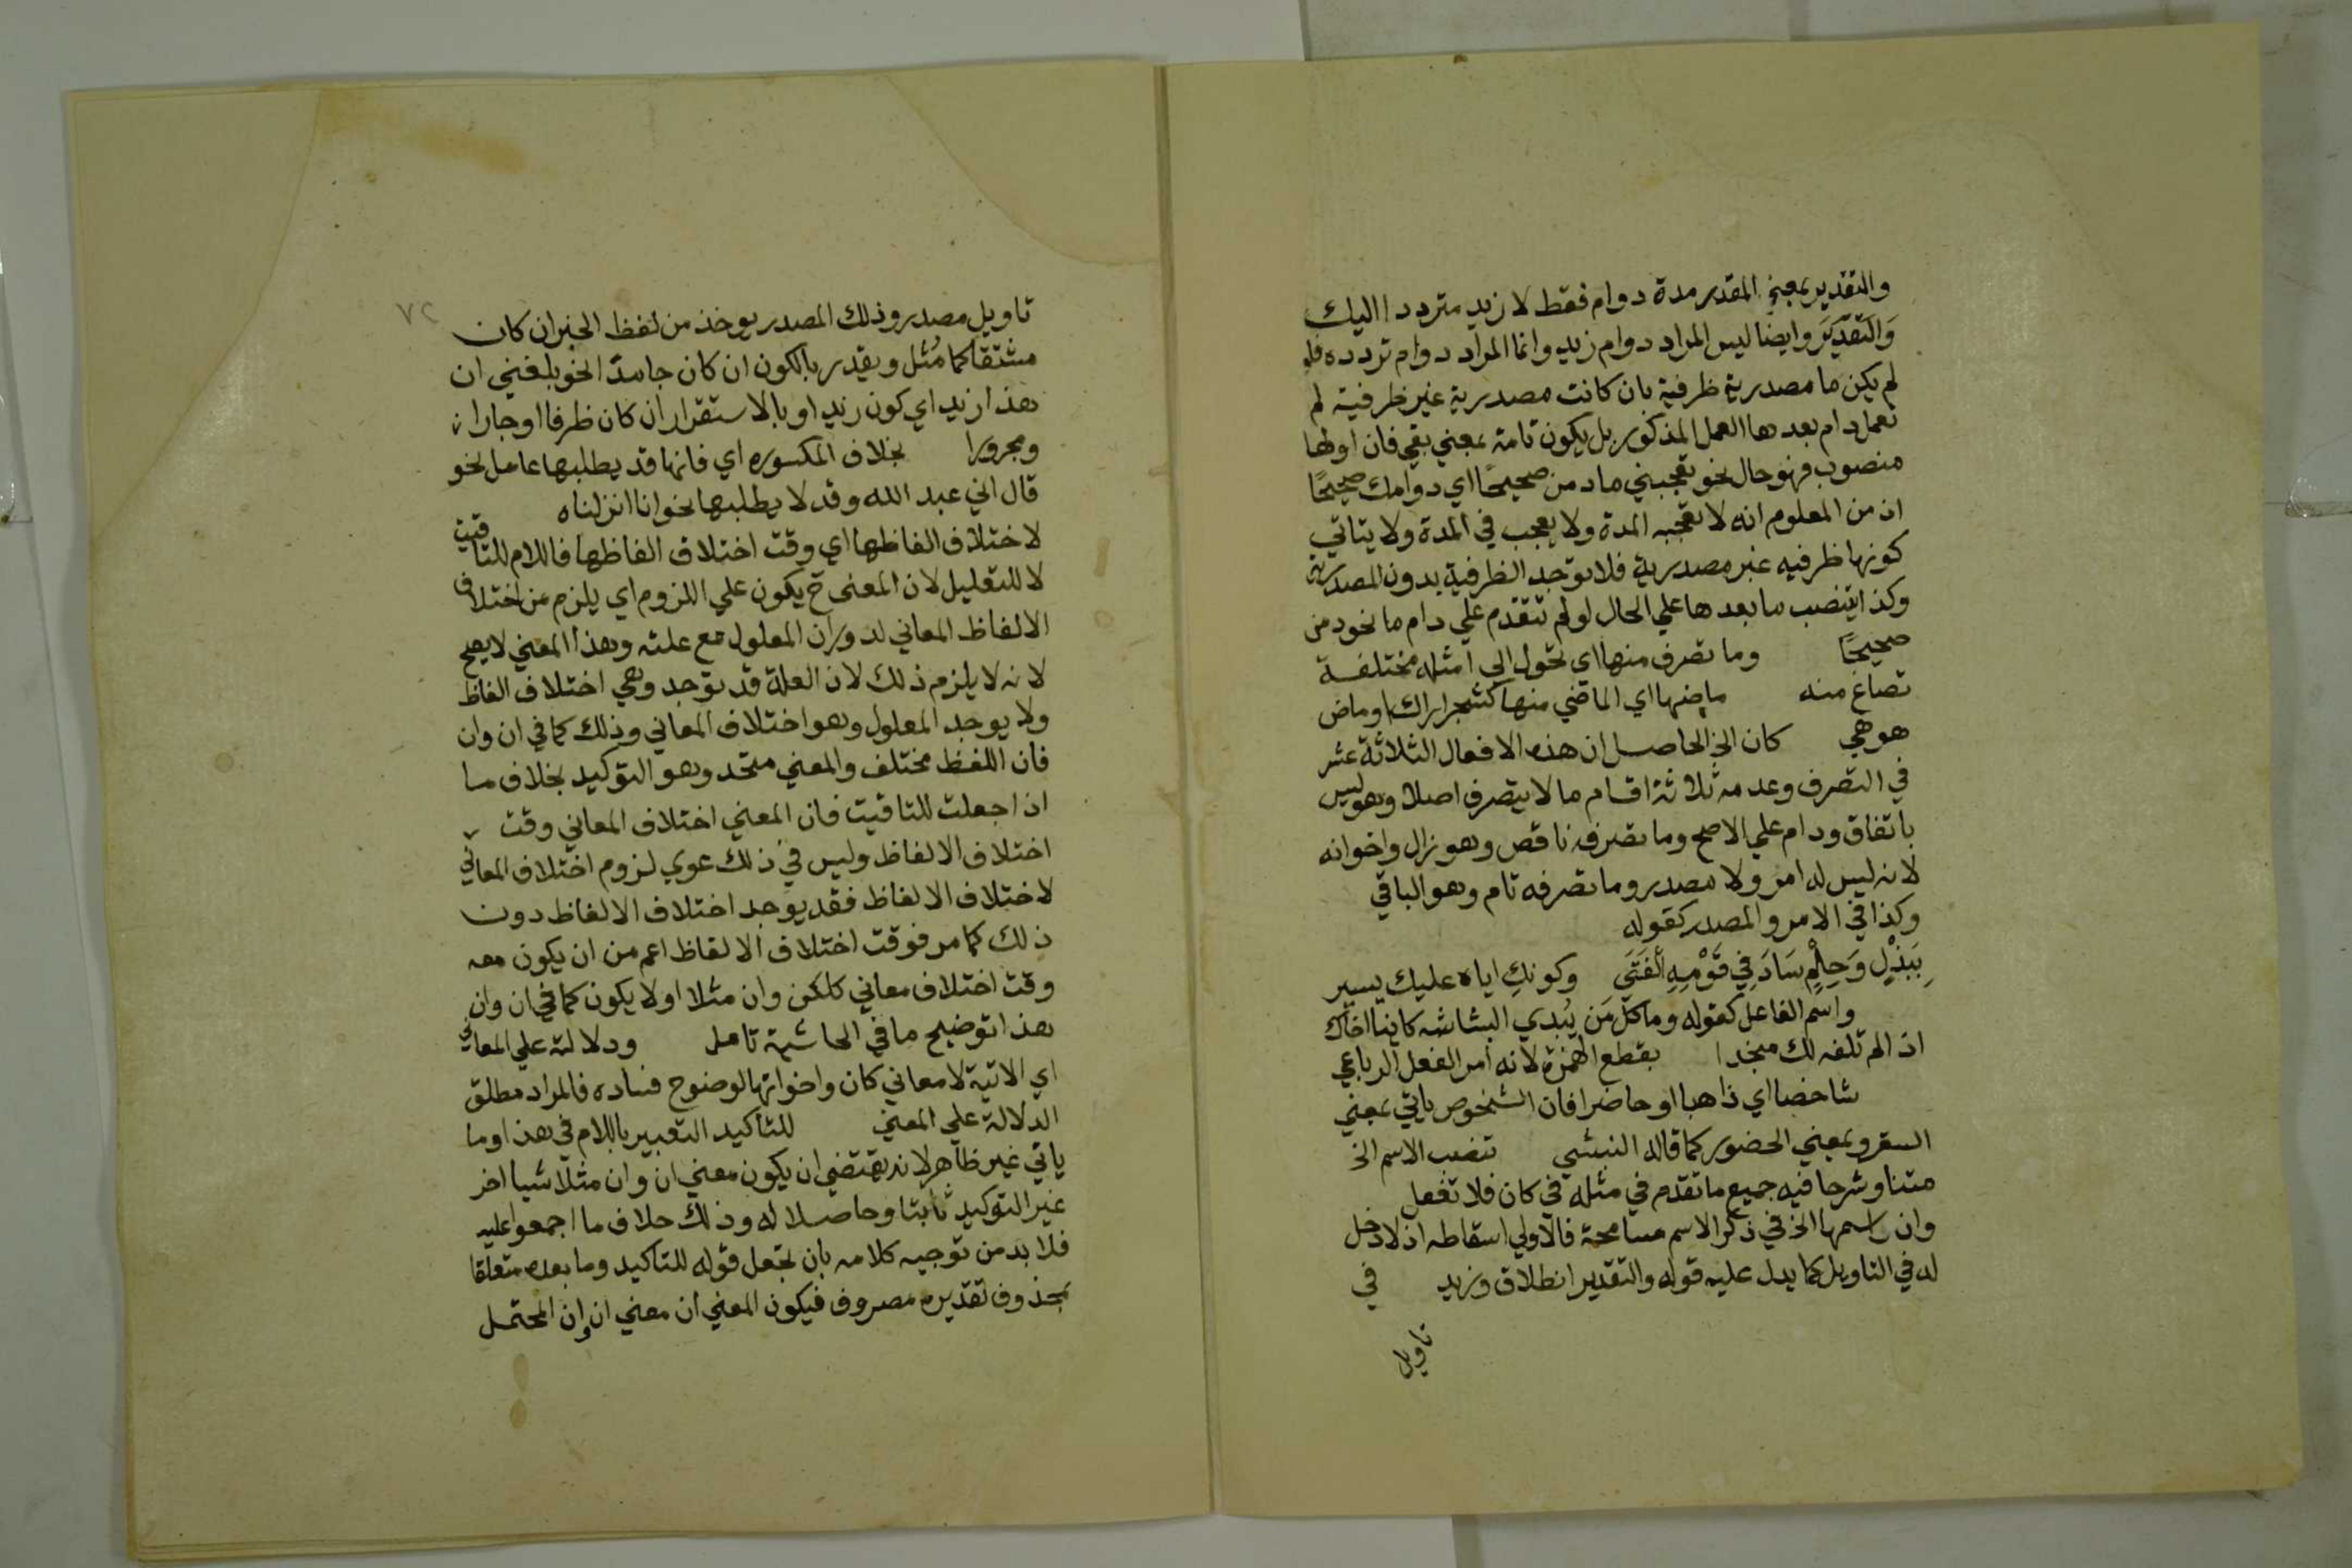 والتقدير بمعني المقدر مدة دوام فقط لا زيد مترددا اليك
والتقدير وايضا ليس المراد دوام زيد وانما المراد دوام تردده فلو
لم يكن ما مصدرية ظرفية بان كانت مصدرية غير ظرفية لم
تعمل دام بعدها العمل المذكور بل يكون تامة بمعني بقي فان اولها
منصوب فهو حال نحو تعجبني ما دمت صحيحًا اي دوامك صحيحًا
اذ من المعلوم انه لا تعجبه المدة ولا يعجب في المدة ولا يتاتي
كونها ظرفيه غير مصدرية فلا توجد الظرفية بدون المصدرية
وكذا ينصب ما بعدها علي الحال لو لم تتقدم علي دام ما نحو دمت
صحيحًا وما تصرف منها اي تحول الي امثله مختلفة
تصاغ منه ماضها اي الماضي منها كشجر اراك او ماض
هو هي كان الخ الحاصل ان هذه الافعال الثلاثة عشر
في التصرف وعدمه ثلاثة اقسام ما لا يتصرف اصلا وهو ليس
باتفاق ودام علي الاصح وما تصرفه ناقص وهو زال واخواته
لانه ليس له امر ولا مصدر وما تصرفه تام وهو الباقي
وكذا في الامر والمصدر كقوله
بِبَذْلٍ وَحِلْمٍ سَادَ فِي قَوْمِهِ الْفَتَى وكونك اياه عليك يسير
واسم الفاعل كقوله وما كل مَن يُبدي البشاشه كاينا اخاك
اذا لم تلفه لك منجدا بقطع الهمزة لانه امر الفعل الرباعي
شاخصا اي ذاهبا او حاضرا فان الشخوص ياتي بمعني
السفر وبمعني الحضور كما قاله النبتيتي تنصب الاسم الخ
متنا وشرحا فيه جميع ما تقدم في مثله في كان فلا تغفل
وان اسمها الخ في ذكر الاسم مسامحة فالاولي اسقاطه اذ لا دخل
له في التاويل كما يدل عليه قوله والتقدير انطلاق وزيد في
تاويل
٧٢
تاويل مصدر وذلك المصدر يوخذ من لفظ الخبر ان كان
مشتقا كما مُثل ويقدر بالكون ان كان جامدًا نحو بلغني ان
هذا زيد اي كون زيد او بالاستقرار ان كان ظرفا او جارا
ومجرورا بخلاف المكسوره اي فانها قد يطلبها عامل نحو
قال اني عبد الله وقد لا يطلبها نحو انا انزلناه
لاختلاف الفاظها اي وقت اختلاف الفاظها فاللام للتاقيت
لا للتعليل لان المعنى ح يكون علي اللزوم اي يلزم من اختلاف
الالفاظ المعاني لدوران المعلول مع علته وهذا المعني لا يصح
لانه لا يلزم ذلك لان العلة قد توجد وهي اختلاف الفاظ
ولا يوجد المعلول وهو اختلاف المعاني وذلك كما في ان وان
فان اللفظ مختلف والمعني متحد وهو التوكيد بخلاف ما
اذا جعلت للتاقيت فان المعني اختلاف المعاني وقت
اختلاف الالفاظ وليس في ذلك دعوي لزوم اختلاف المعاني
لاختلاف الالفاظ فقد يوجد اختلاف الالفاظ دون
ذلك كما مر فوقت اختلاف الالفاظ اعم من ان يكون معه
وقت اختلاف معاني كلكن وان مثلا او لا يكون كما في ان وان
هذا توضيح ما في الحاشية تامل ودلالته علي المعاني
اي الاتية لا معاني كان واخواتها لوضوح فساده فالمراد مطلق
الدلالة علي المعني للتاكيد التعبير باللام في هذا وما
ياتي غير ظاهر لانه يقتضي ان يكون معني ان وان مثلا شيا اخر
غير التوكيد ثابتا وحاصلا له وذلك خلاف ما اجمعوا عليه
فلا بد من توجيه كلامه بان تجعل قوله للتاكيد وما بعده متعلقا
بمحذوف تقديره مصروف فيكون المعني ان معني ان وان المحتمل